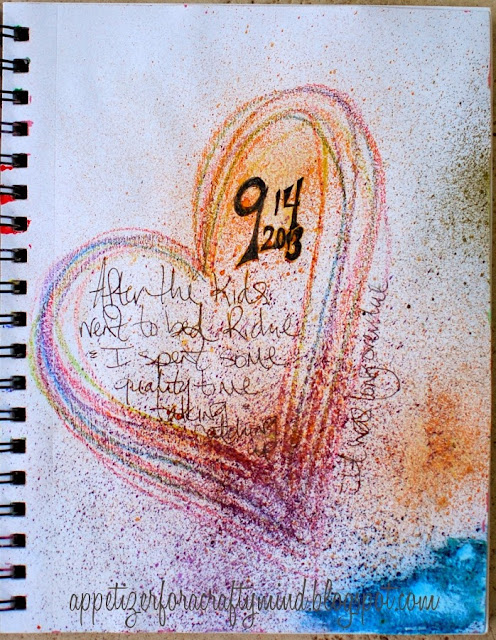 9 14
2013
After the Kids
went to bed
I spent some
quality time
talking
catching
up
It was long overdue
appetizerforacraftymind.blogspot.com